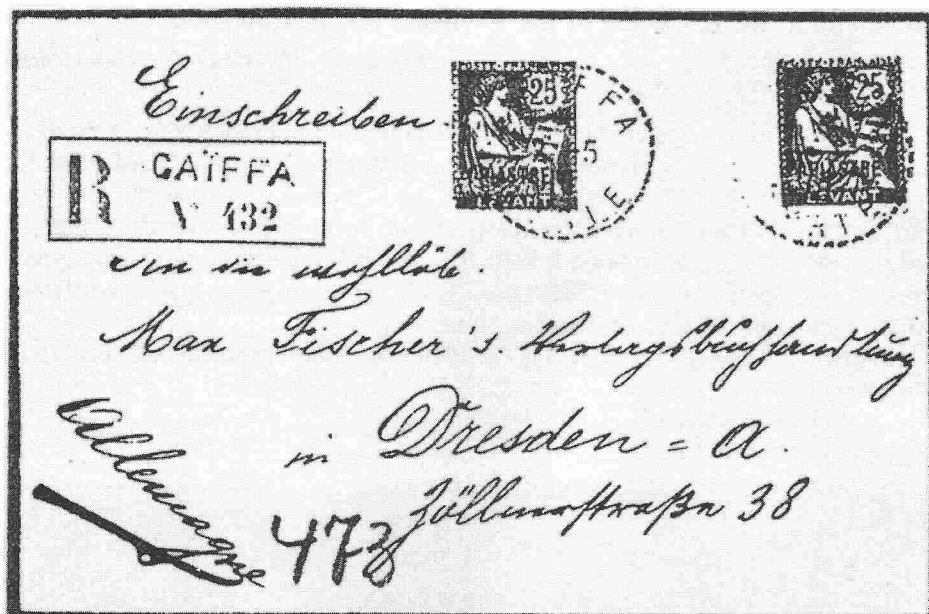 Einschreiben.
POSTE FRANÇAISE
25
1 PIASTRE
LEVANT
FFA
5
LE
POSTE FRANÇAISE
25
1 PIASTRE
LEVANT
R CAÏFFA
N° 432
An die wohllöb.
Max Fischer's. Verlagsbuchhandlung
in Dresden = A.
Zöllnerstraße 38
Allemagne
473